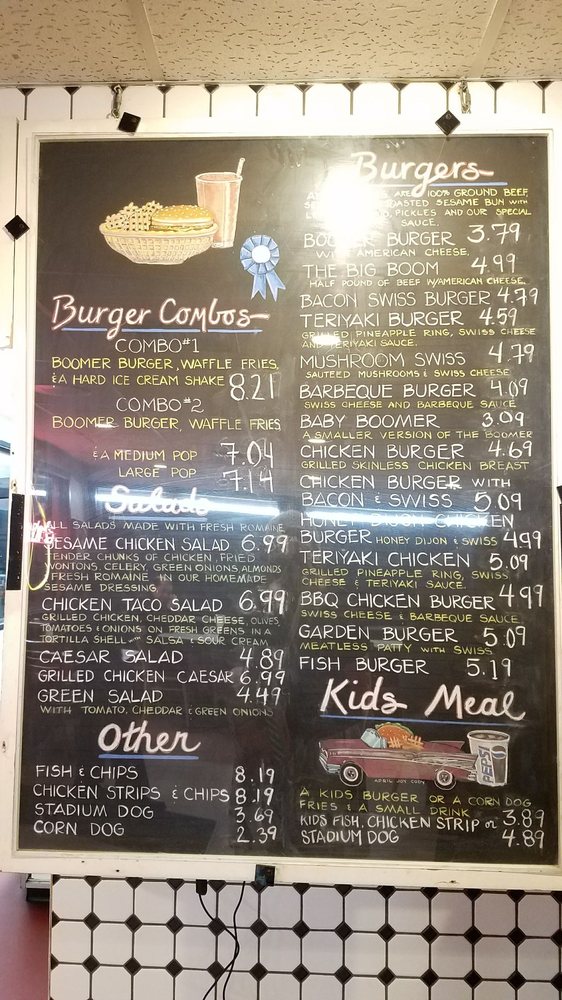 Burger Combos
COMBO #1
BOOMER BURGER, WAFFLE FRIES,
& A HARD ICE CREAM SHAKE 8.21
COMBO #2
BOOMER BURGER, WAFFLE FRIES
& A MEDIUM POP 7.04
LARGE POP 7.14
Salads
ALL SALADS MADE WITH FRESH ROMAINE
SESAME CHICKEN SALAD 6.99
TENDER CHUNKS OF CHICKEN, FRIED
WONTONS, CELERY, GREEN ONIONS, ALMONDS
FRESH ROMAINE IN OUR HOMEMADE
SESAME DRESSING
CHICKEN TACO SALAD 6.99
GRILLED CHICKEN, CHEDDAR CHEESE, OLIVES,
TOMATOES & ONIONS ON FRESH GREENS IN A
TORTILLA SHELL WITH SALSA & SOUR CREAM
CAESAR SALAD 4.89
GRILLED CHICKEN CAESAR 6.99
GREEN SALAD 4.49
WITH TOMATO, CHEDDAR & GREEN ONIONS
Other
FISH & CHIPS 8.19
CHICKEN STRIPS & CHIPS 8.19
STADIUM DOG 3.69
CORN DOG 2.39
Burgers
ARE 100% GROUND BEEF,
TOASTED SESAME BUN WITH
PICKLES AND OUR SPECIAL
SAUCE.
BOOMER BURGER 3.79
WITH AMERICAN CHEESE.
THE BIG BOOM 4.99
HALF POUND OF BEEF W/AMERICAN CHEESE.
BACON SWISS BURGER 4.79
TERIYAKI BURGER 4.59
GRILLED PINEAPPLE RING, SWISS CHEESE
AND TERIYAKI SAUCE.
MUSHROOM SWISS 4.79
SAUTEED MUSHROOMS & SWISS CHEESE
BARBEQUE BURGER 4.09
SWISS CHEESE AND BARBEQUE SAUCE
BABY BOOMER 3.09
A SMALLER VERSION OF THE BOOMER
CHICKEN BURGER 4.69
GRILLED SKINLESS CHICKEN BREAST
CHICKEN BURGER WITH
BACON & SWISS 5.09
HONEY DIJON CHICKEN
BURGER HONEY DIJON & SWISS 4.99
TERIYAKI CHICKEN 5.09
GRILLED PINEAPPLE RING, SWISS
CHEESE & TERIYAKI SAUCE.
BBQ CHICKEN BURGER 4.99
SWISS CHEESE & BARBEQUE SAUCE.
GARDEN BURGER 5.09
MEATLESS PATTY WITH SWISS
FISH BURGER 5.19
Kids Meal
PEPSI
APRIL JOY CODY
A KIDS BURGER OR A CORN DOG
FRIES & A SMALL DRINK 3.89
KIDS FISH, CHICKEN STRIP or
STADIUM DOG 4.89